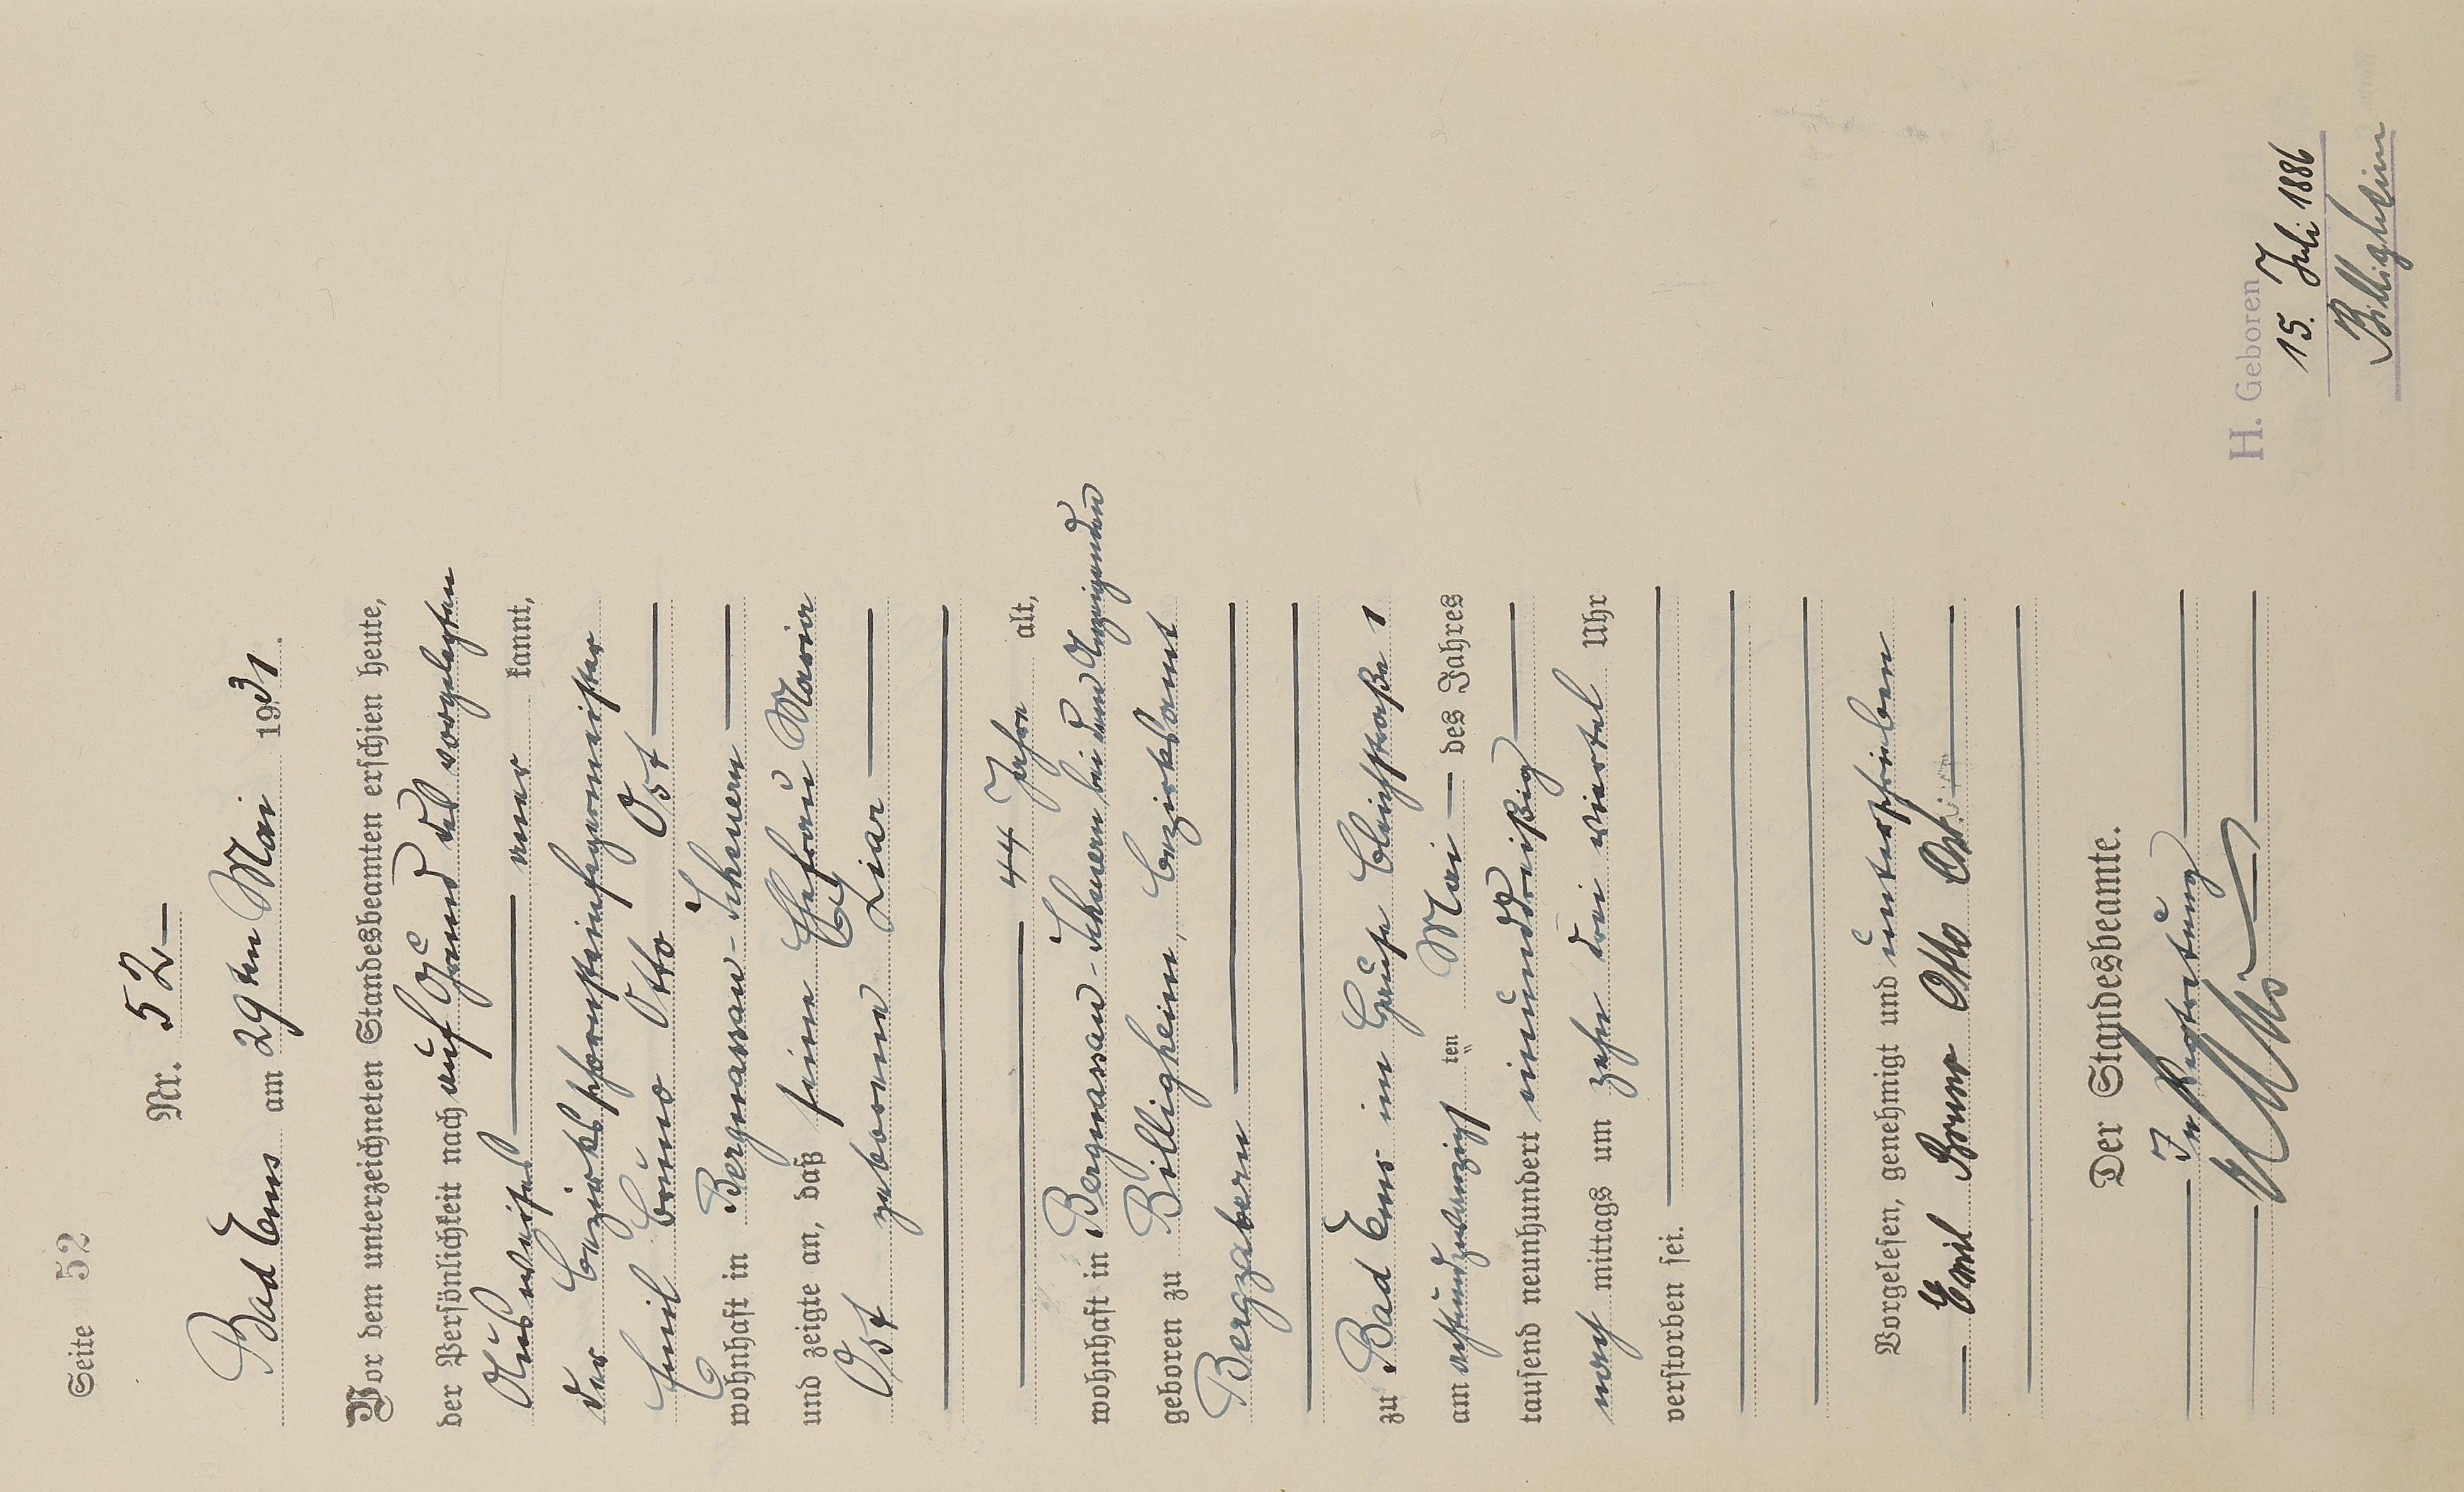 Seite 52
Nr. 52
Bad Ems am 29ten Mai 1931.
Vor dem unterzeichneten Standesbeamten erschien heute,
der Persönlichkeit nach auf Grund des vorgelegten
Ausweises aner kannt,
der Bezirksschornsteinfegermeister
Emil Bruno Otto Ost
wohnhaft in Bergnassau-Scheuern
und zeigte an, daß seine Ehefrau Maria
Ost geborene Liar
44 Jahre alt,
wohnhaft in Bergnassau-Scheuern bei dem Anzeigenden
geboren zu Billigheim, Bezirksamt
Bergzabern
zu Bad Ems im Hause Bleichstraße 1
am achtundzwanzigst ten Mai des Jahres
tausend neunhundert einunddreißig
nach mittags um zehn drei viertel Uhr
verstorben sei.
Vorgelesen, genehmigt und unterschrieben
Emil Bruno Otto Ost
Der Standesbeamte.
In Vertretung
H. Geboren
15. Juli 1886
Billigheim